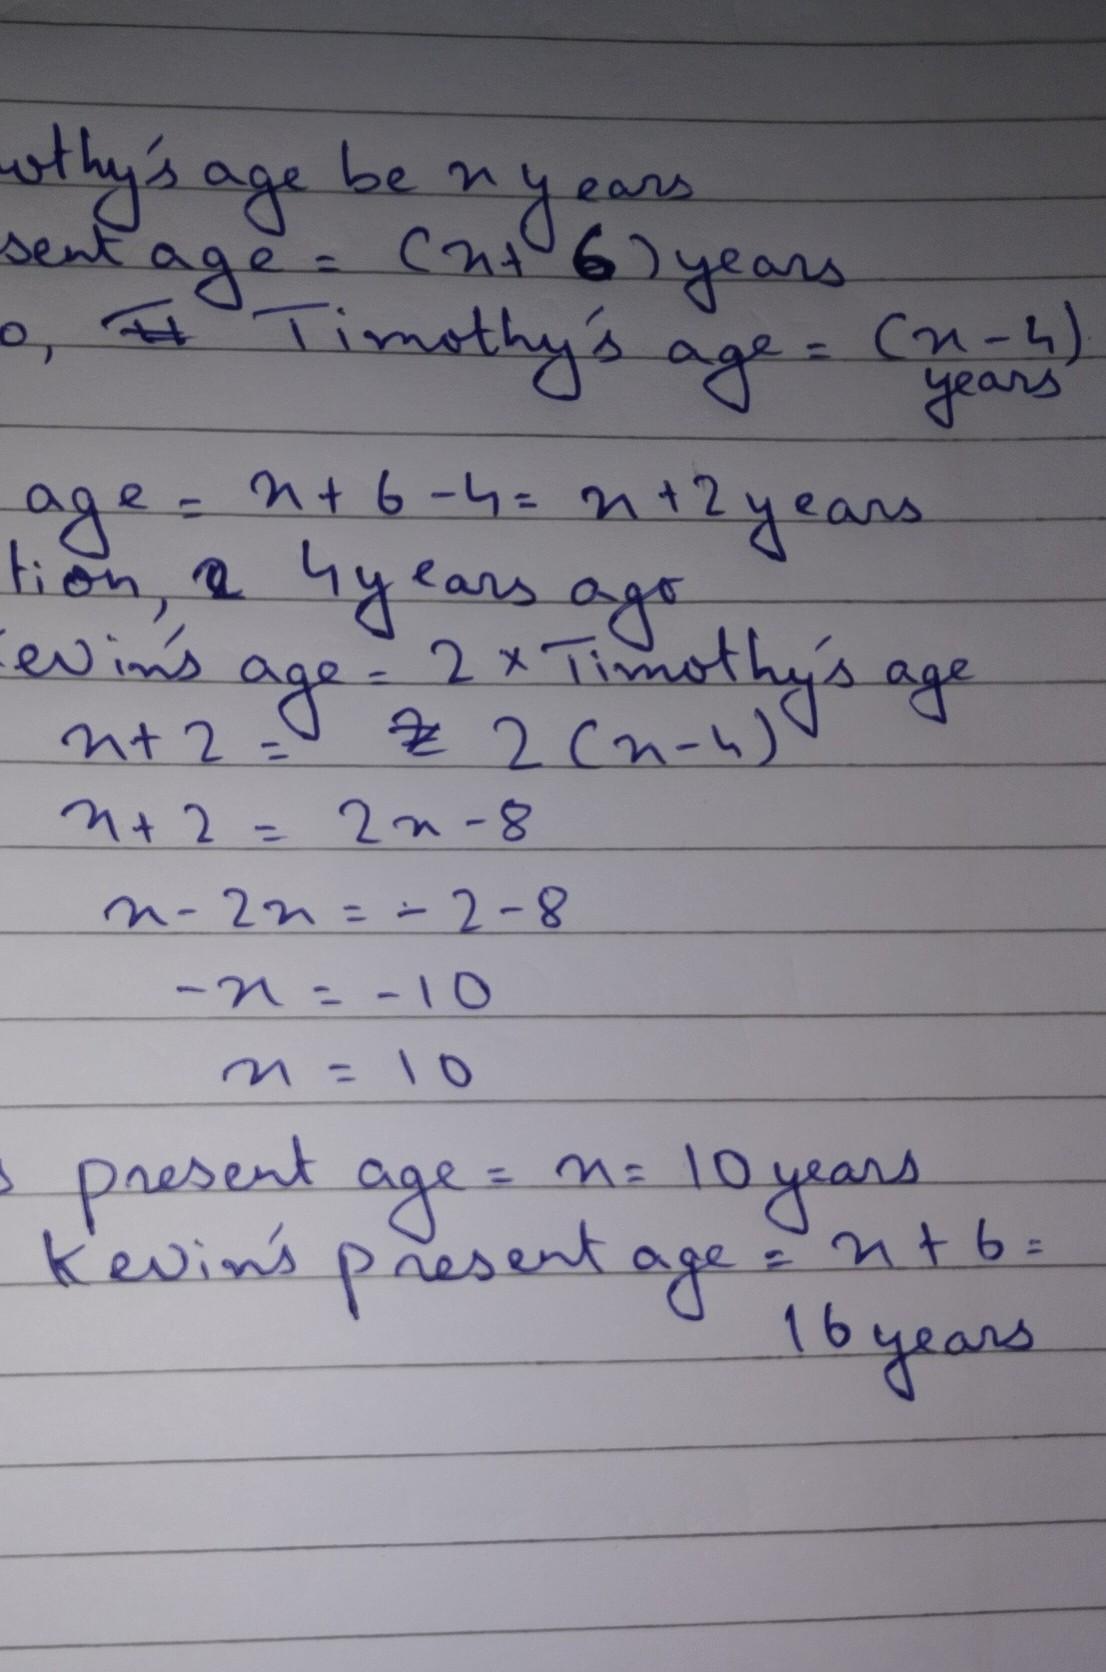 othy's age be x years
sent age = (x+6) years
o, Timothy's age = (x-4)
years
age = x+6-4= x+2 years
tion, 4 years ago
evin's age = 2 × Timothy's age
x+2 = 2(x-4)
x+2 = 2x-8
x-2x = -2-8
-x = -10
x = 10
s present age = x= 10 years
Kevin's present age = x+6=
16 years